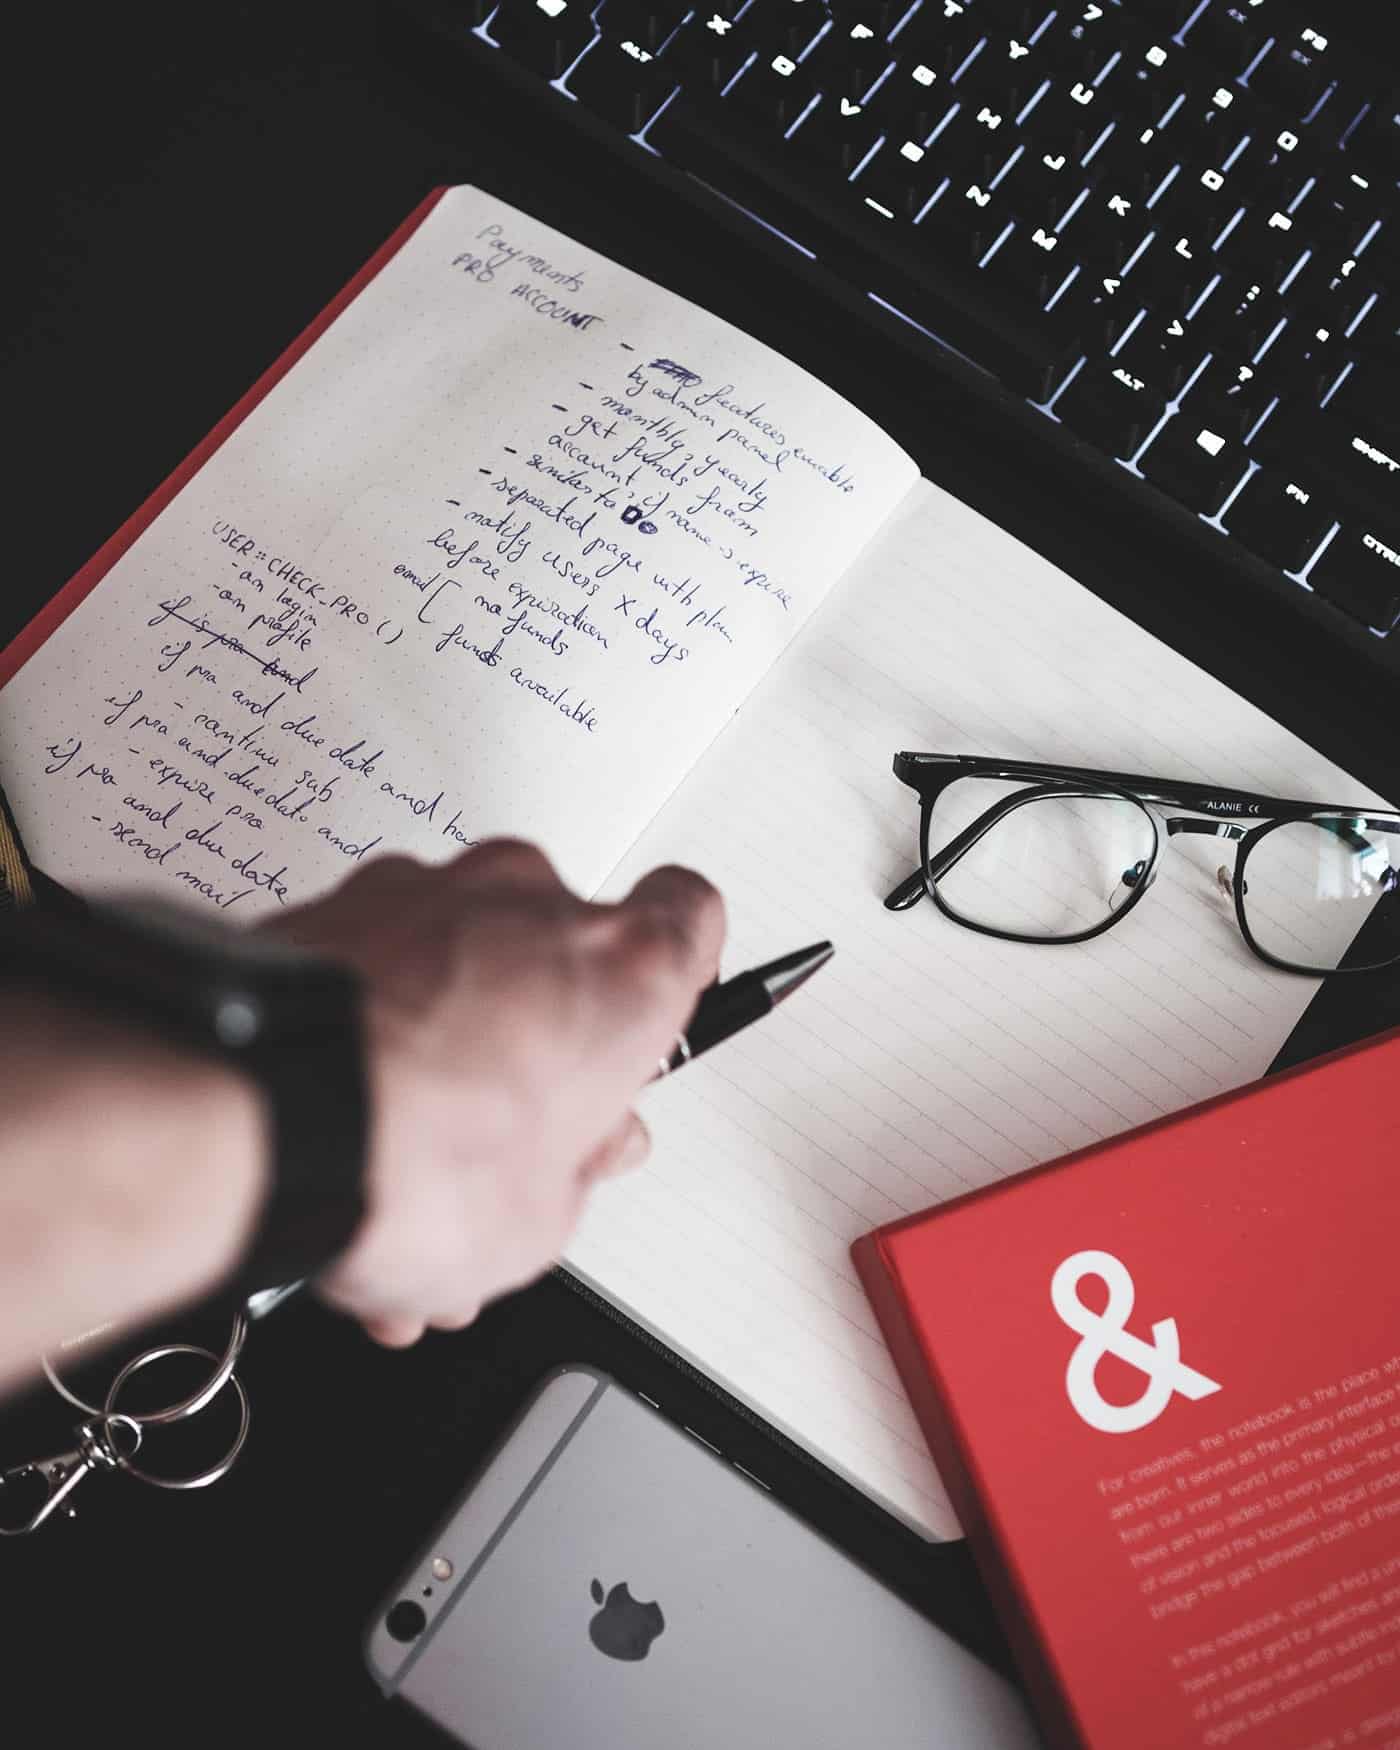 Payments
PRO ACCOUNT
- features enable
by admin panel
- monthly, yearly
- get funds from
account, if none -> expire
- similar to DO
- separated page with plan
- notify users X days
before expiration
email [ no funds
funds available
USER::CHECK_PRO()
- on login
- on profile
if is pro and
if pro and due date and
- continu sub
if pro and due date and
- expire pro
if pro and due date
- send mail
ALANIE CE
&
For creatives, the notebook is the place
are born. It serves as the primary interface
from our inner world into the physical
there are two sides to every idea—the
of vision and the focused, logical
bridge the gap between both of
In this notebook, you will find a
have a dot grid for sketches
of a narrow rule with subtle
digital text editors meant by
ALT
X
C
V
B
N
M
F
G
H
J
K
L
T
Y
U
I
O
P
7
8
9
0
F8
ALT
FN
SHIFT
CTRL